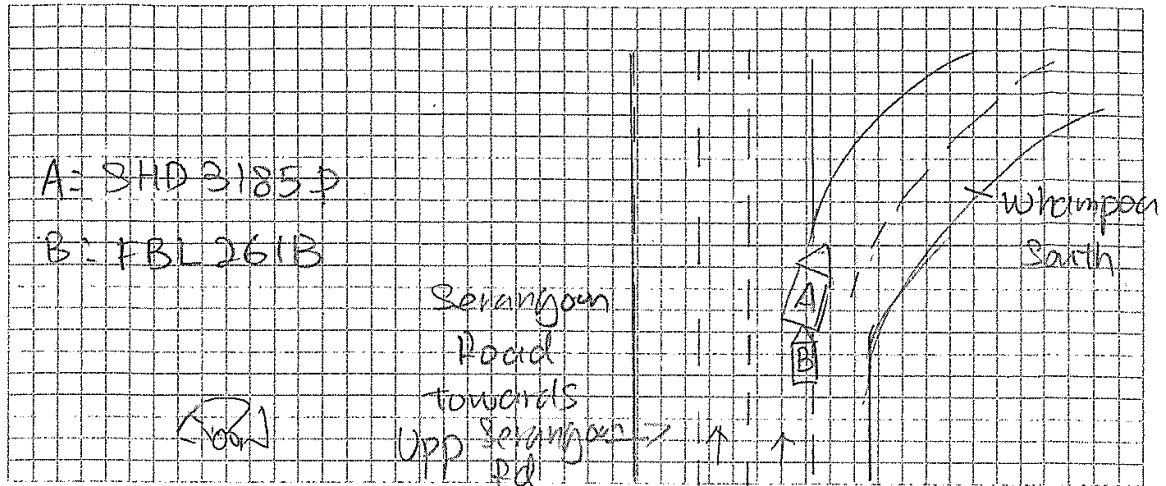 A: SHD 3185P
B: FBL 261B
Serangoon
Road
towards
Upp Serangoon
Rd
A
B
Whampoa
South